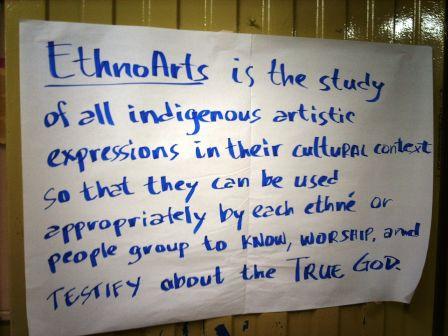 EthnoArts is the study
of all indigenous artistic
expressions in their cultURAL context
so that they can be used
appropriately by each ethné or
people group to KNOW, WORSHIP, and
TESTIFY about the TRUE GOD.